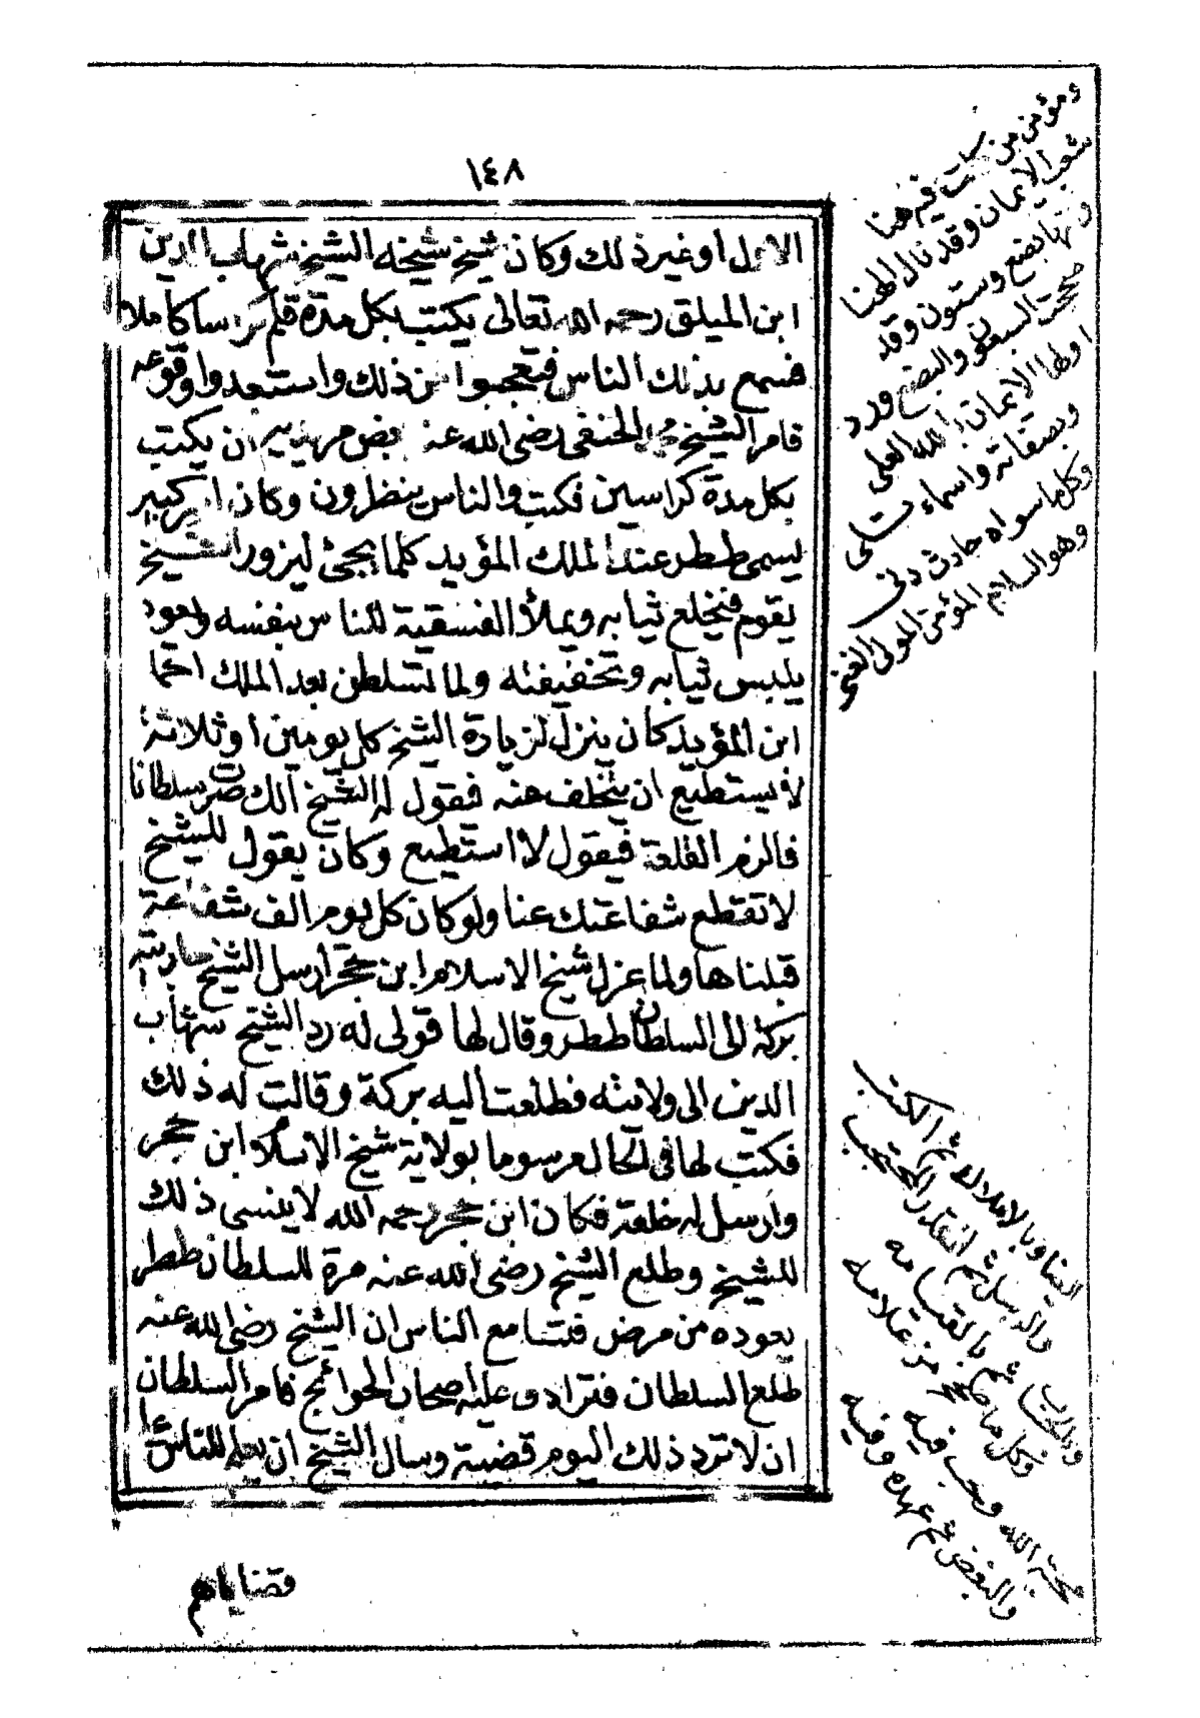 ١٤٨
الاول أو غير ذلك وكان شيخ شيخه الشيخ شهاب الدين
ابن الميلق رحمه الله تعالى يكتب بكل مدة قلم كراسا كاملا
فسمع بذلك الناس فتعجبوا من ذلك واستبعدوا وقوعه
فامر الشيخ محمد الحنفى رضى الله عنه بعض مريديه ان يكتب
بكل مدة كراسين فكتب والناس ينظرون وكان امير كبير
يسمى ططر عند الملك المؤيد كلما يجئ ليزور الشيخ
يقوم فيخلع ثيابه ويملأ الفسقية للناس بنفسه ويعود
يلبس ثيابه وتخفيفته ولما تسلطن بعد الملك احمد
ابن المؤيد كان ينزل لزيارة الشيخ كل يومين او ثلاثة
لا يستطيع ان يتخلف عنه فيقول له الشيخ انك صرت سلطانا
فالزم القلعة فيقول لا استطيع وكان يقول للشيخ
لا تقطع شفاعتك عنا ولو كان كل يوم الف شفاعة
قبلناها ولما عزل شيخ الاسلام ابن حجر أرسل الشيخ جاريته
بركة الى السلطان ططر وقال لها قولى له رد الشيخ شهاب
الدين الى ولايته فطلعت اليه بركة وقالت له ذلك
فكتب لها فى الحال مرسوما بولاية شيخ الاسلام ابن حجر
وارسل له خلعة فكان ابن حجر رحمه الله لا ينسى ذلك
للشيخ وطلع الشيخ رضى الله عنه مرة للسلطان ططر
يعوده من مرض فتسامع الناس ان الشيخ رضى الله عنه
طلع السلطان فترادف عليه اصحاب الحوائج فامر السلطان
ان لا ترد ذلك اليوم قضية وسال الشيخ ان يعلم للناس على
قضاياهم
ومؤمن من فيه هنا
شعب الايمان وقد نال الهنا
وانها بضع وستون وقد
صحت السبعون والبضع ورد
اولها الايمان بالله العلى
وبصفاته واسماء
وكل ما سواه حادث دنى
وهو السلام المؤمن المولى الغنى
الينا وبالاملاك ثم الكتب
والرسل ثم القدر المحتجب
ثم بالقيامه
وكل ما من علامه
محبة الله وحب فيه
والبغض ثم عهده وفيه